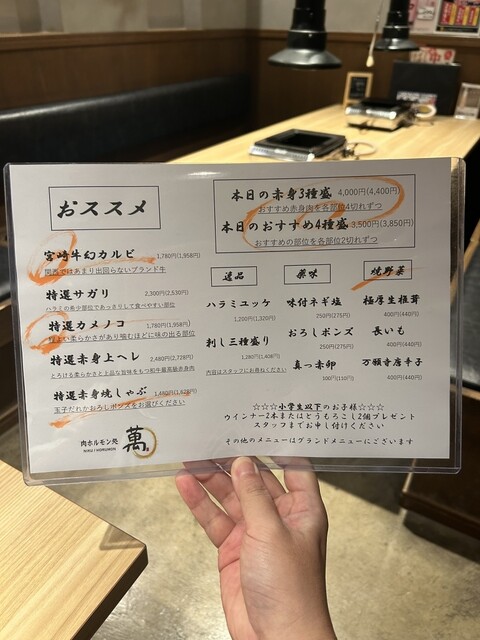 おススメ
宮崎牛幻カルビ 1,780円(1,958円)
関西ではあまり出回らないブランド牛
特選サガリ 2,300円(2,530円)
ハラミの希少部位であっさりして食べやすい部位
特選カメノコ 1,780円(1,958円)
程よい柔らかさがあり噛むほどに味の出る部位
特選赤身上ヘレ 2,480円(2,728円)
とろける柔らかさと上品な旨味をもつ和牛最高級赤身肉
特選赤身焼しゃぶ 1,480円(1,628円)
玉子だれかおろしポンズをお選びください
肉ホルモン処
NIKU / HORUMON
萬
本日の赤身3種盛 4,000円(4,400円)
おすすめ赤身肉を各部位4切れずつ
本日のおすすめ4種盛 3,500円(3,850円)
おすすめの部位を各部位2切れずつ
逸品
ハラミユッケ
1,200円(1,320円)
刺し三種盛り
1,280円(1,408円)
内容はスタッフにお尋ねください
薬味
味付ネギ塩
250円(275円)
おろしポンズ
250円(275円)
真っ赤卵
100円(110円)
焼野菜
極厚生椎茸
400円(440円)
長いも
400円(440円)
万願寺唐辛子
400円(440円)
☆☆☆小学生以下のお子様☆☆☆
ウインナー2本またはとうもろこし2個プレゼント
スタッフまでお申し付けください
その他のメニューはグランドメニューにございます